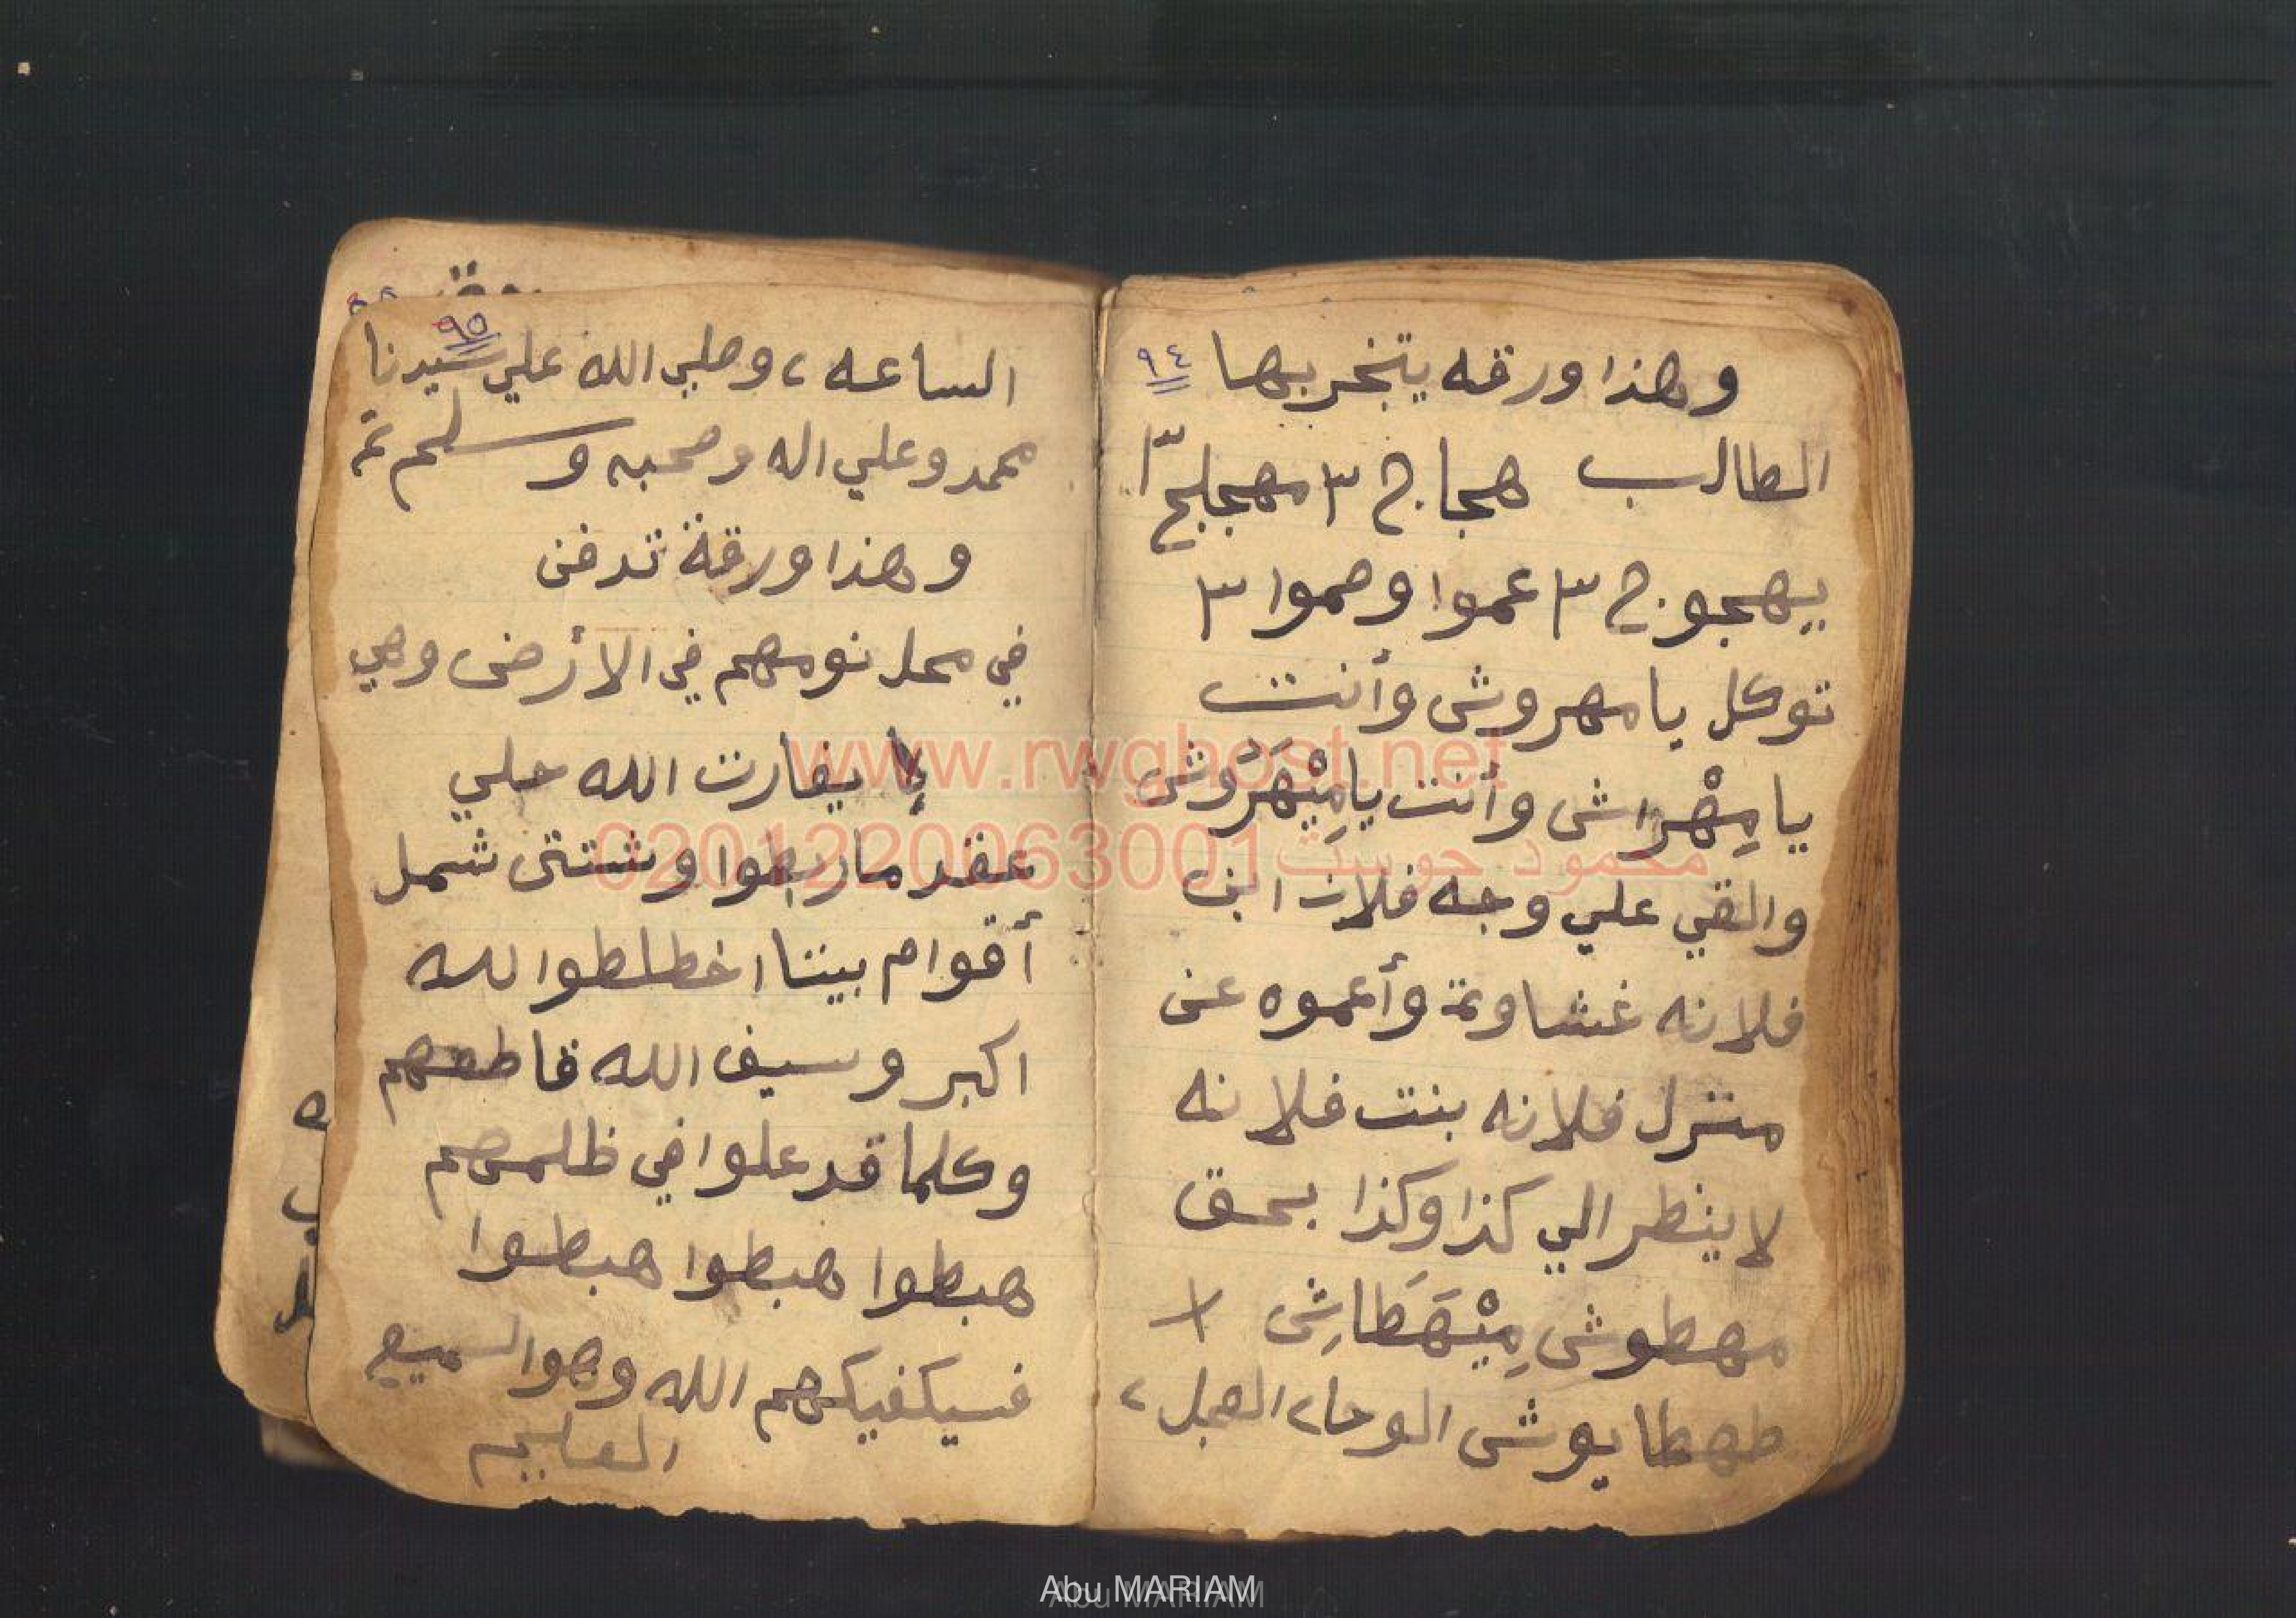 ٩٤
وهذا ورقه يتبخر بها
الطالب هجاج ٣ مهجلج ٣
يهجوج ٣ عموا وصموا ٣
توكل يا مهروش وأنت
يا مِهْراش وأنت يا مِيْهَرَوش
والقي علي وجه فلان ابن
فلانه غشاوة وأعموه عن
منزل فلانه بنت فلانه
لا ينظر الي كذا وكذا بحق
مهطوش مِيْهَطَاشِ
طهطايوش الوحا٢ العجل٢
٩٥
الساعه٢ وصلي الله علي سيدنا
محمد وعلي اله وصحبه وسلم تم
وهذا ورقة تدفن
في محل نومهم في الأرض وهي
يا بغارت الله حلي
عقد ما ربطوا وشتتي شمل
أقوام بيننا اخطلطوا لله
اكبر وسيف الله قاطعهم
وكلما قد علوا في ظلمهم
هبطوا هبطوا هبطوا
فسيكفيكهم الله وهو السميع
العليم
www.rwghost.net
محمود جوست 0201220063001
Abu MARIAM